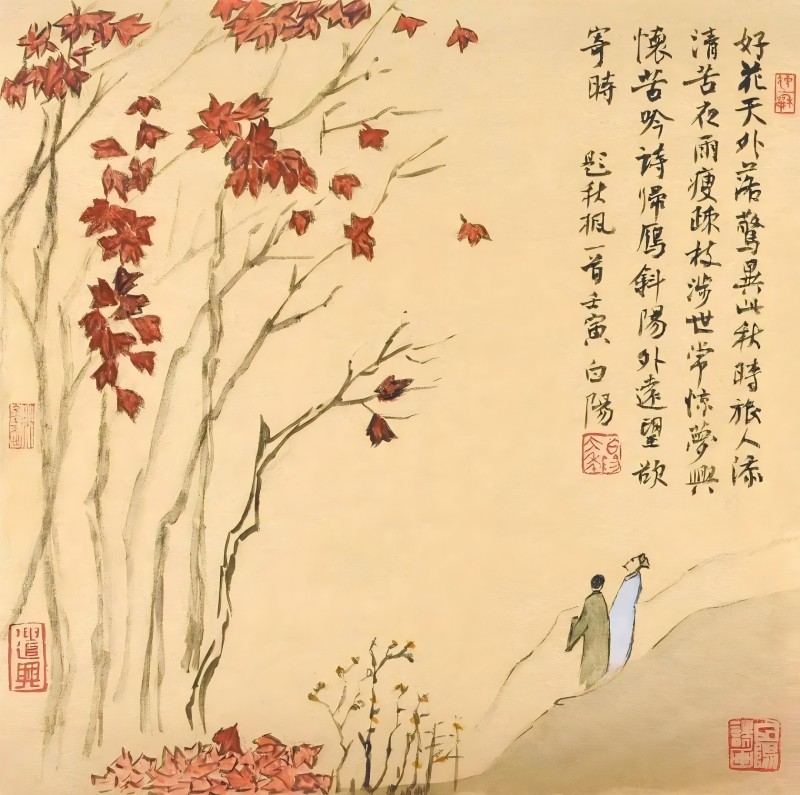 好花天外落驚異此秋時旅人添
清苦夜雨瘦疎枝涉世常惊夢興
懷苦吟詩歸鴈斜陽外遠望欲
寄時　題秋楓一首壬寅白陽